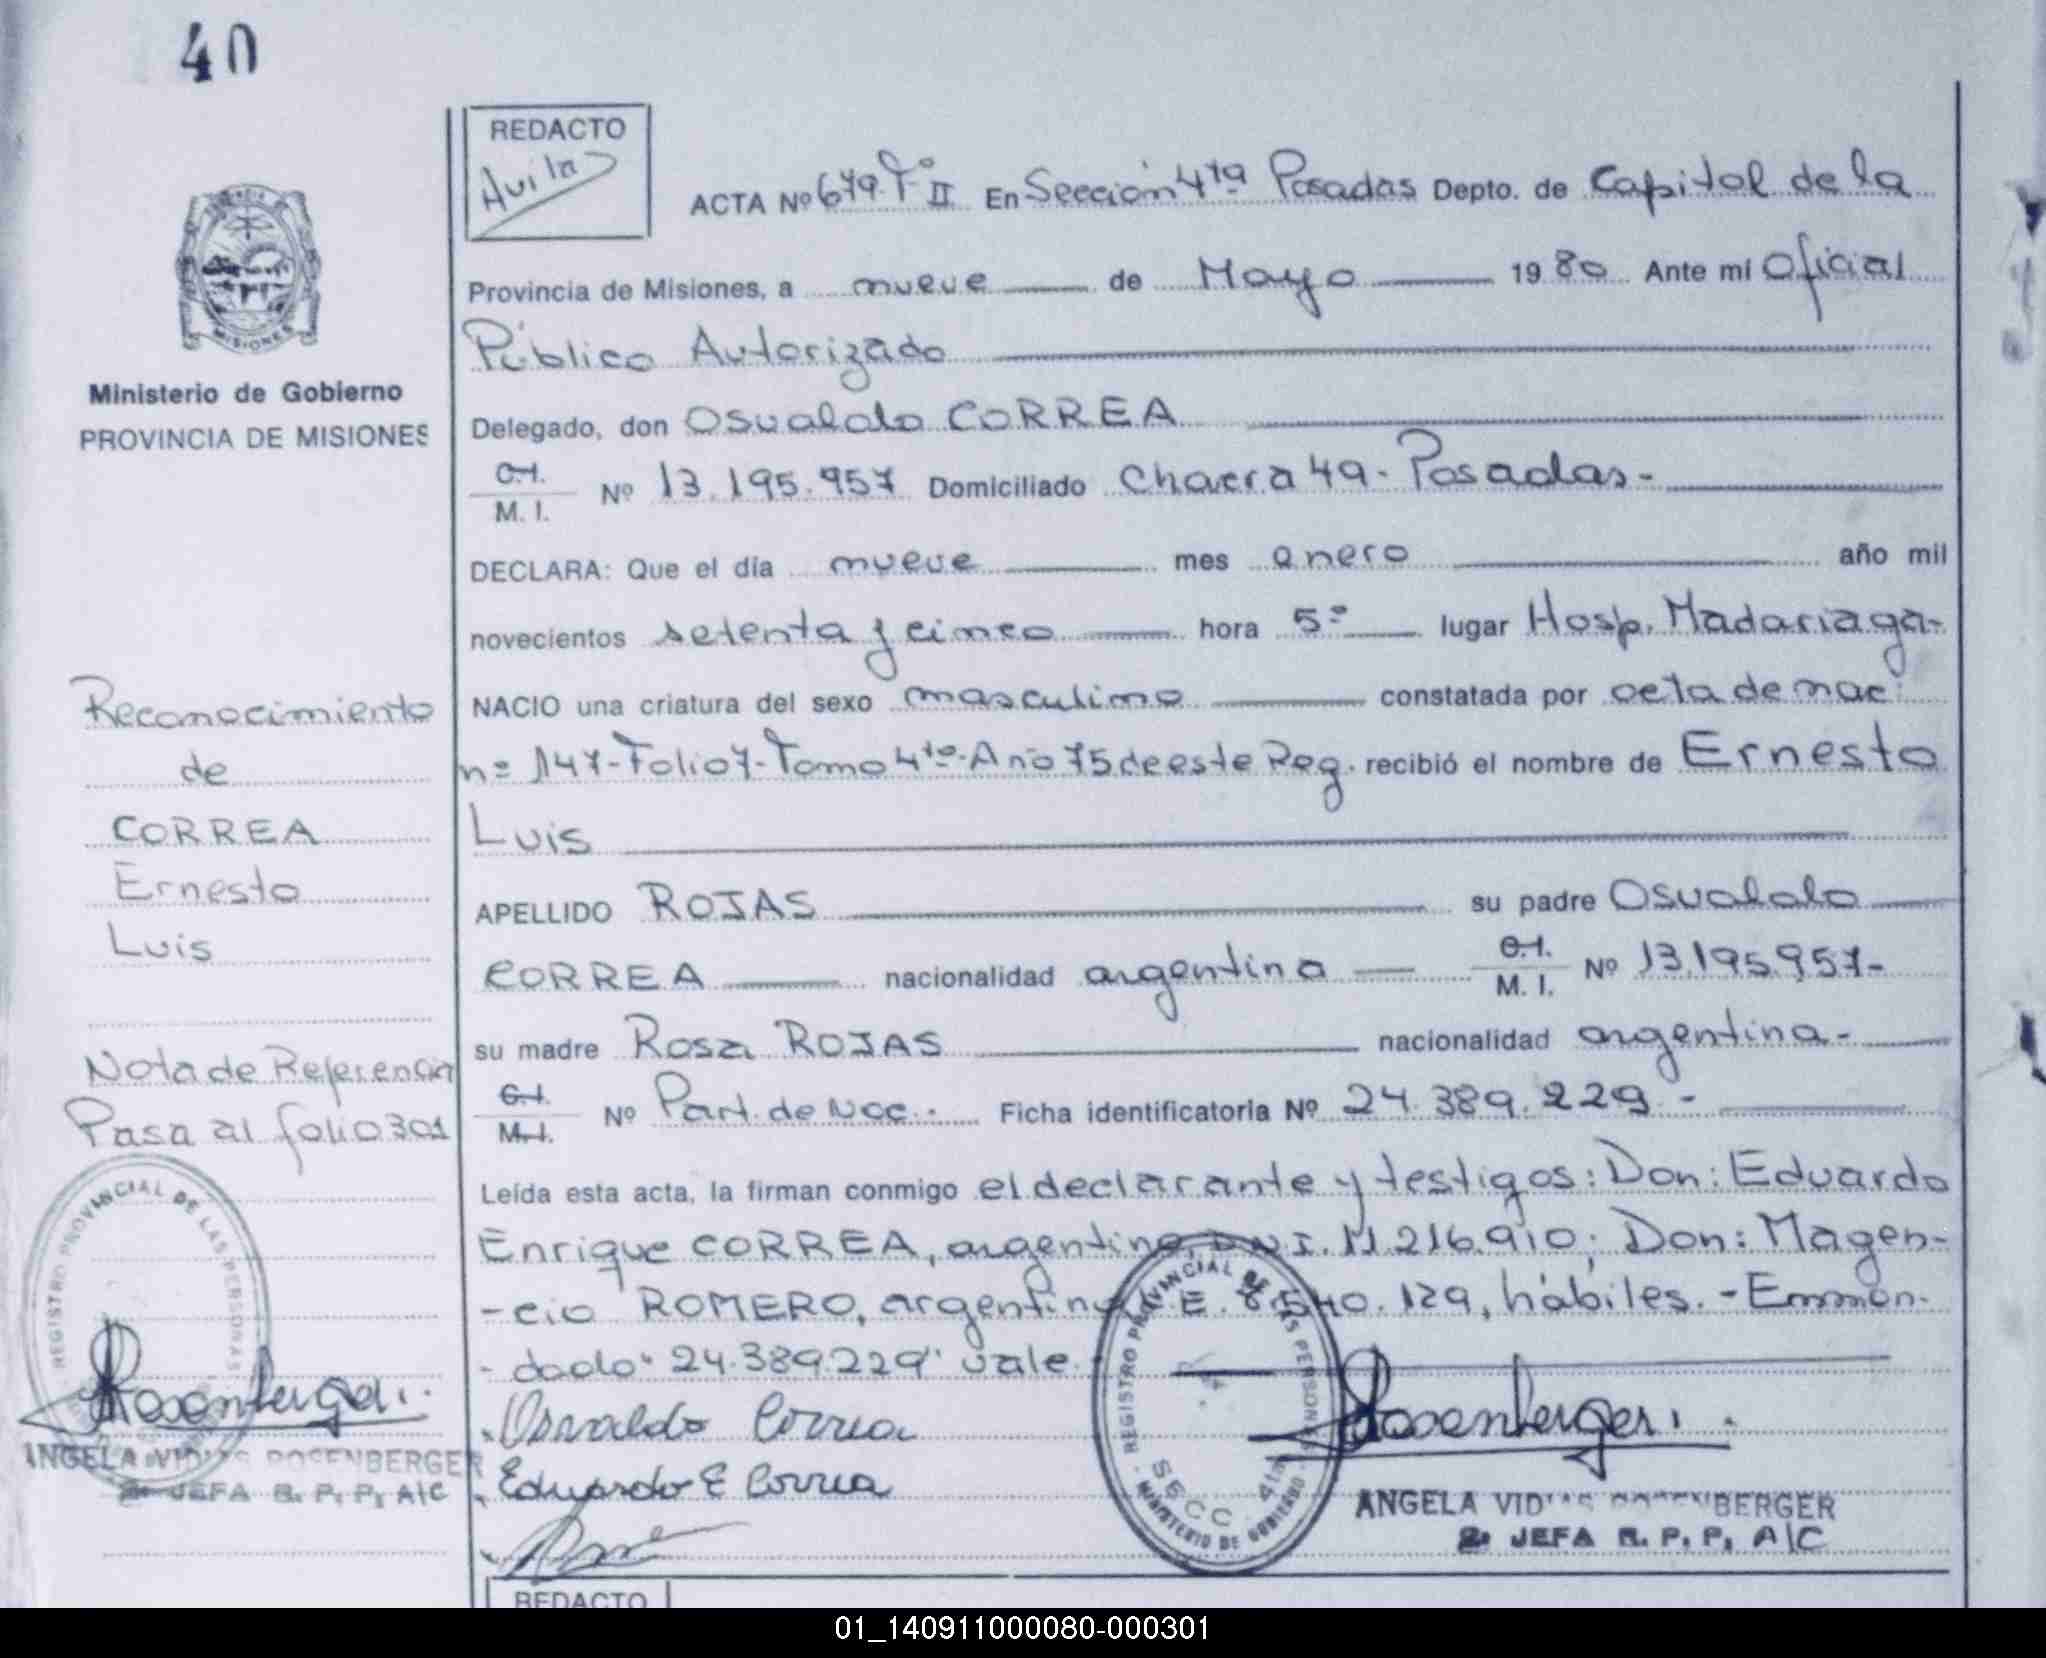 40
REDACTO
Avila
ACTA Nº 679. Tº II En Sección 4ta Posadas Depto. de Capital de la
Provincia de Misiones, a nueve de Mayo 1980 Ante mí Oficial
Público Autorizado
Delegado, don Osvaldo CORREA
C.I.
M. I. Nº 13.195.957 Domiciliado Chacra 49 - Posadas -
DECLARA: Que el día nueve mes enero año mil
novecientos setenta y cinco hora 5º lugar Hosp. Madariaga -
NACIO una criatura del sexo masculino constatada por acta de nac.
nº 147 - Folio 7 - Tomo 4to - Año 75 de este Reg. recibió el nombre de Ernesto
Luis
APELLIDO ROJAS su padre Osvaldo
CORREA nacionalidad argentina C.I.
M. I. Nº 13.195.957 -
su madre Rosa ROJAS nacionalidad argentina -
C.I.
M. I. Nº Part. de Nac. Ficha identificatoria Nº 24.389.229 -
Leída esta acta, la firman conmigo el declarante y testigos: Don: Eduardo
Enrique CORREA, argentino, D.N.I. 11.216.910; Don: Magen-
- cio ROMERO, argentino, L.E. 540.129, hábiles. - Enmen-
- dado "24.389.229" vale.
Osvaldo Correa
Eduardo E Correa
Rosenberger
ANGELA ROSENBERGER
2º JEFA R. P. P. A/C
REGISTRO PROVINCIAL DE LAS PERSONAS
SECC 4ta
MINISTERIO DE GOBIERNO
MISIONES
Ministerio de Gobierno
PROVINCIA DE MISIONES
Reconocimiento
de
CORREA
Ernesto
Luis
Nota de Referencia
Pasa al folio 301
REGISTRO PROVINCIAL DE LAS PERSONAS
Rosenberger
ANGELA ROSENBERGER
2º JEFA R. P. P. A/C
REDACTO
01_140911000080-000301